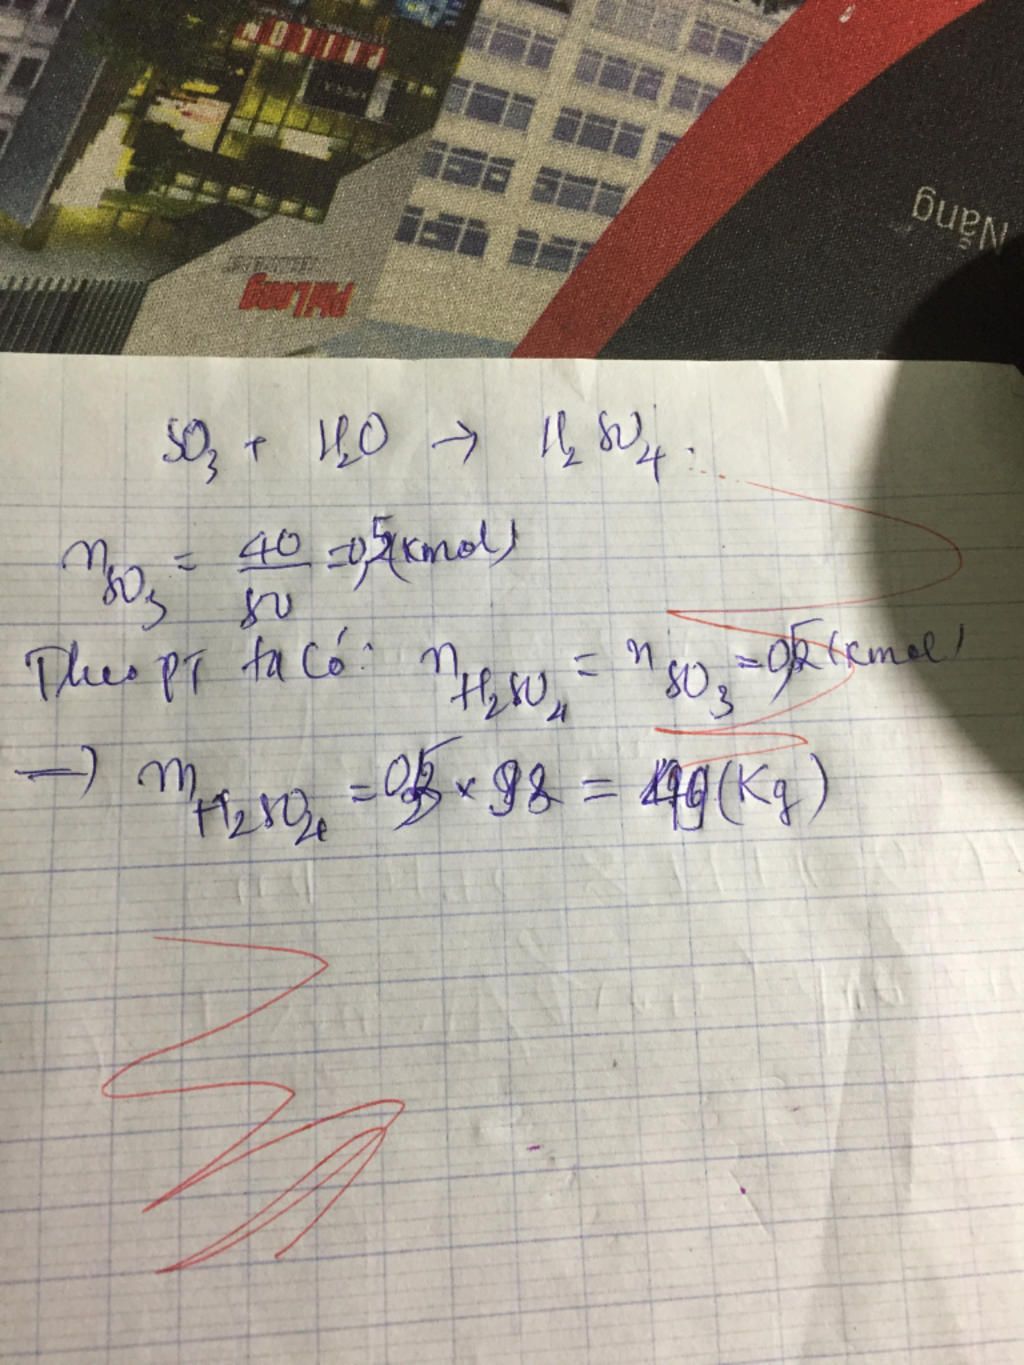 PHILON
PhiLong
Nẵng
SO3 + H2O → H2SO4.
nSO3 = 40/80 = 0,5 (kmol)
Theo PT ta có: nH2SO4 = nSO3 = 0,5 (kmol)
→) mH2SO4 = 0,5 × 98 = 49 (Kg)